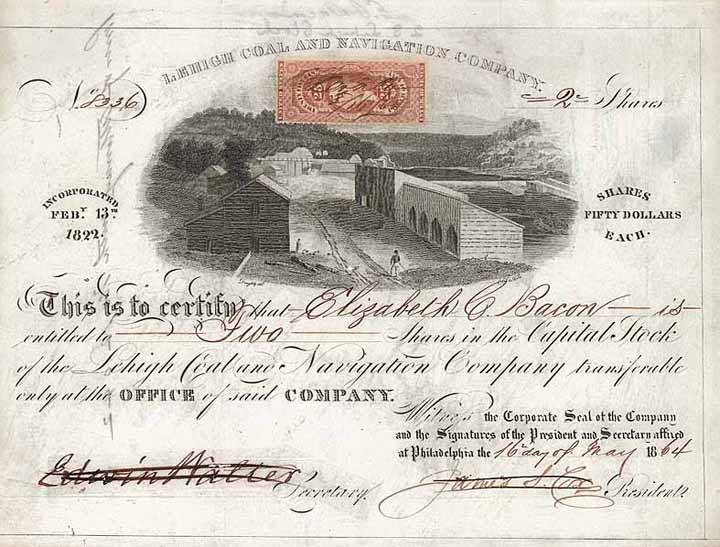 LEHIGH COAL AND NAVIGATION COMPANY.
UNITED STATES
25
25
N. 8236
2 Shares
INCORPORATED
FEBY. 13TH
1822.
SHARES
FIFTY DOLLARS
EACH.
This is to certify that Elizabeth C. Bacon is
entitled to Two Shares in the Capital Stock
of the Lehigh Coal and Navigation Company transferable
only at the OFFICE of said COMPANY.
Witness the Corporate Seal of the Company
and the Signatures of the President and Secretary affixed
at Philadelphia the 16 day of May 1864
Edwin Walter Secretary.
James S. Cox President